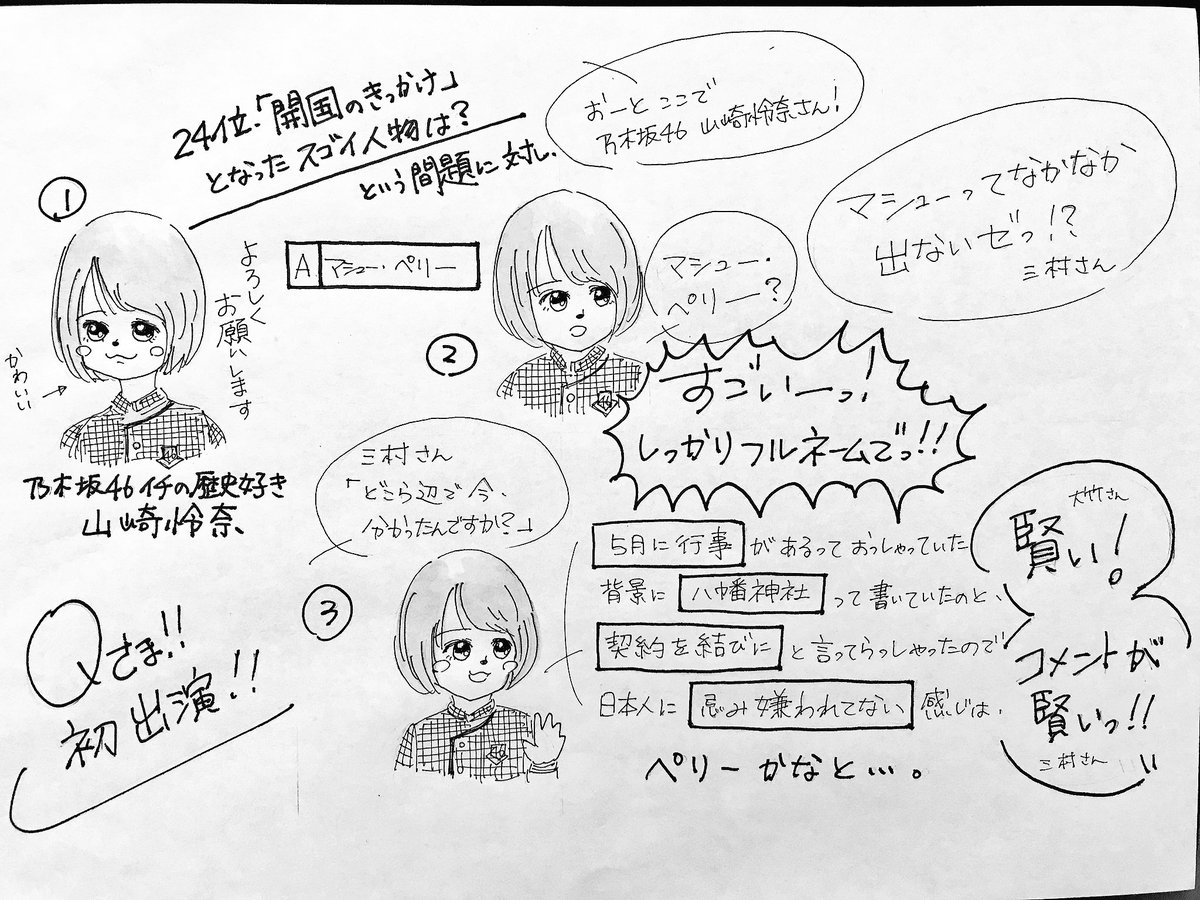 24位.「開国のきっかけ」
となったスゴイ人物は?
という問題に対し、
おーと ここで
乃木坂46 山崎怜奈さん!
マシューってなかなか
出ないゼっ!?
三村さん
①
よろしく
お願いします
かわいい
乃木坂46イチの歴史好き
山崎怜奈、
A マシュー・ペリー
②
マシュー・
ペリー?
すごいーっ!
しっかりフルネームでっ!!
三村さん
「どこら辺で今、
分かったんですか?」
③
5月に行事があるっておっしゃっていた
背景に八幡神社って書いていたのと、
契約を結びにと言ってらっしゃったので
日本人に忌み嫌われてない感じは、
ペリーかなと…。
大竹さん
賢い!
コメントが
賢いっ!!
三村さん
Qさま!!
初出演!!